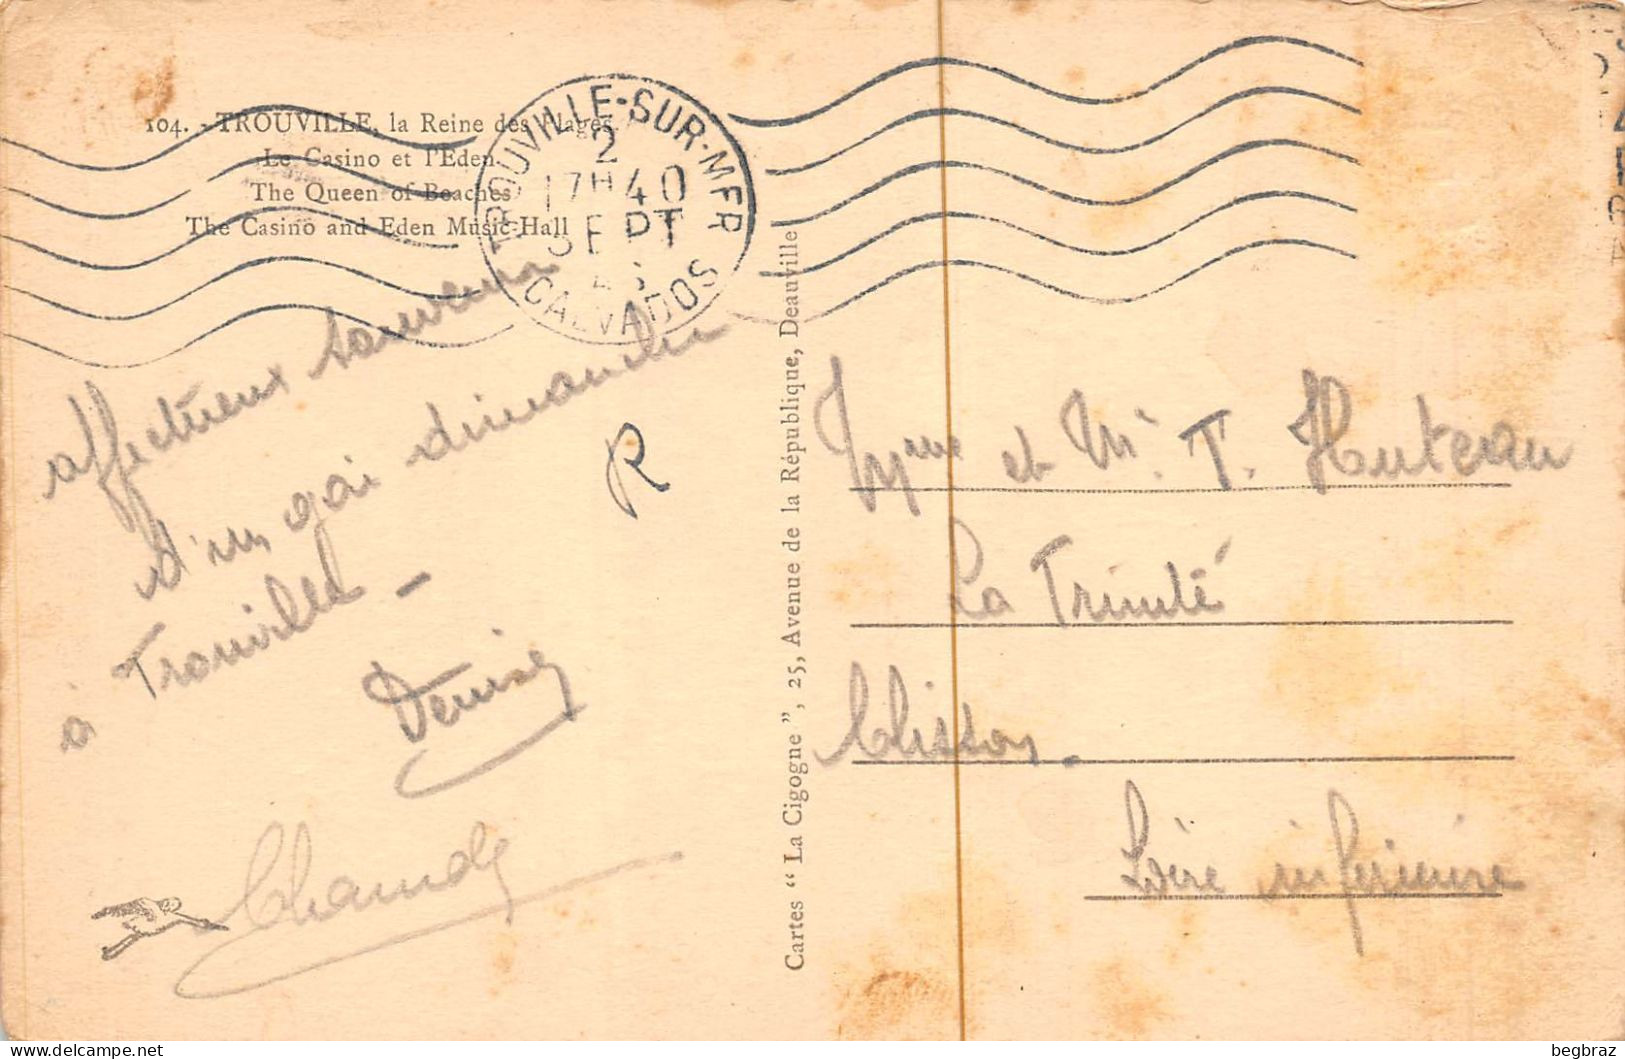 104. - TROUVILLE, la Reine des Plages.
Le Casino et l'Eden
The Queen of Beaches
The Casino and Eden Music-Hall
TROUVILLE-SUR-MER
2
17H40
SEPT
CALVADOS
affectueux souvenir
d'un gai dimanche
à Trouville -
Denise
R
Cartes “ La Cigogne ”, 25, Avenue de la République, Deauville
Mme et Mr. T. Huteau
La Trinité
Clisson.
Loire inférieure
begbraz